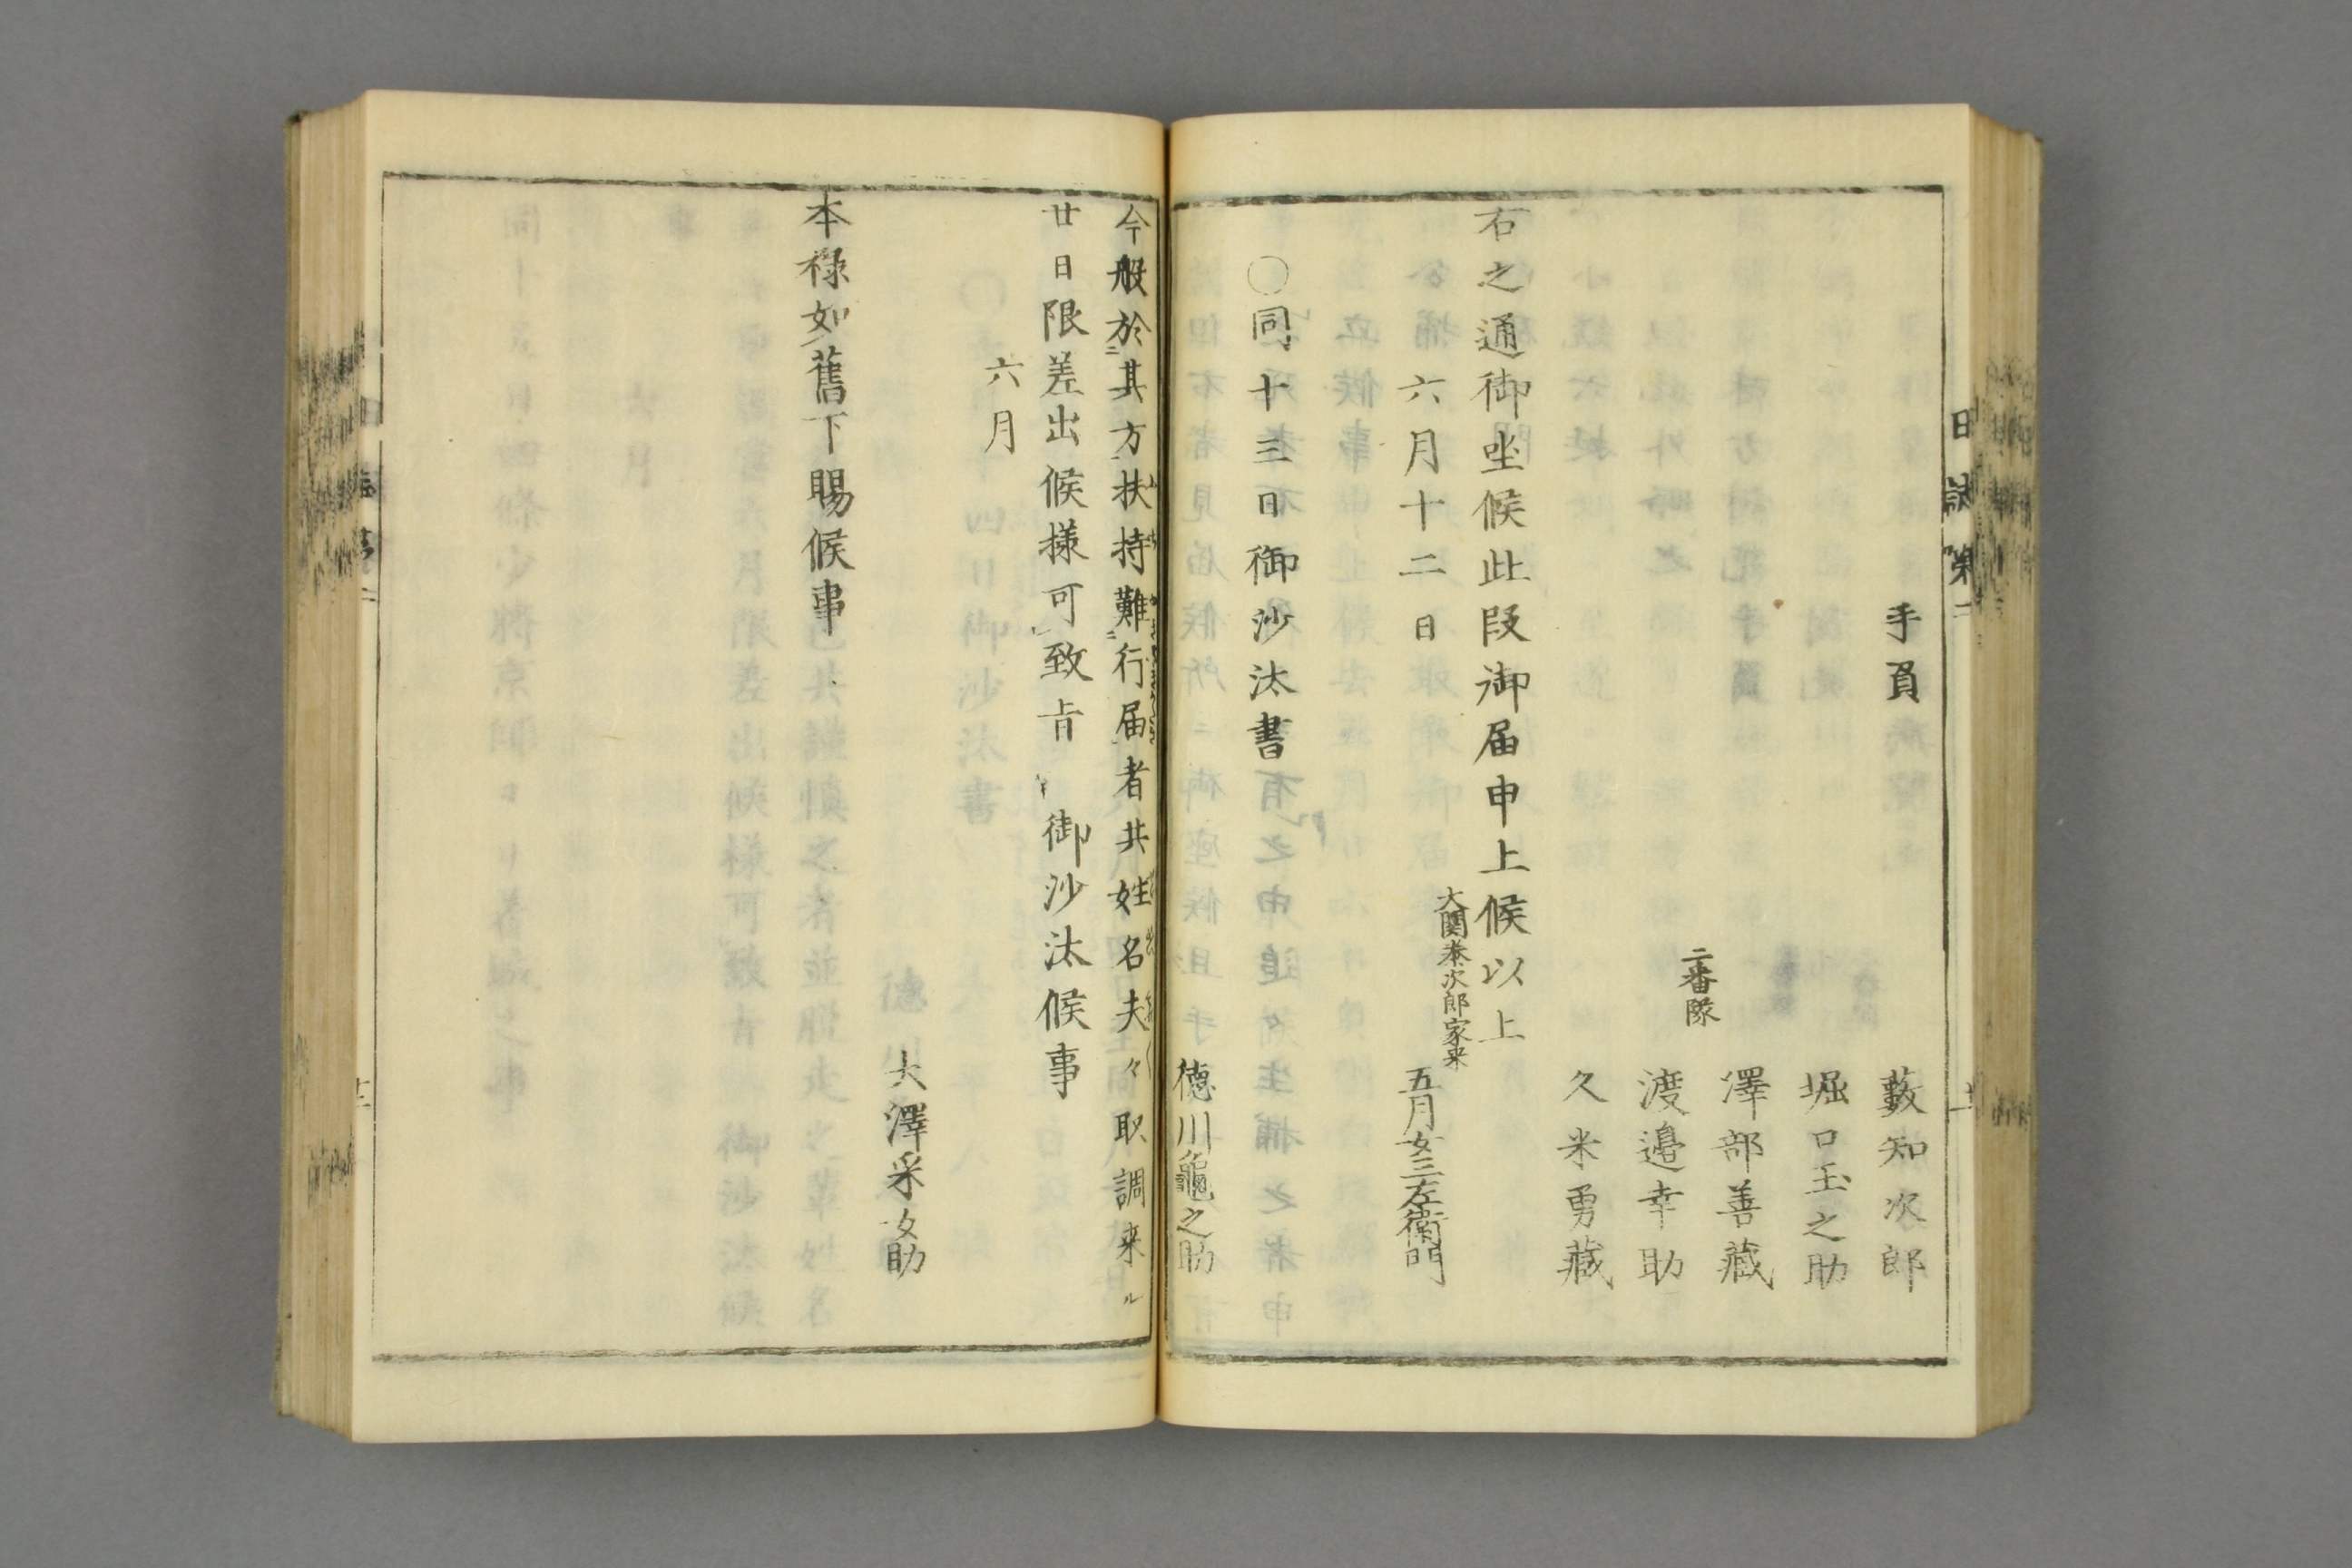 手負
藪知次郎
堀口玉之助
二番隊
澤部善藏
渡邉幸助
久米勇藏
右之通御坐候此段御届申上候以上
六月十二日
大関泰次郎家来
五月女三左衛門
〇同十三日御沙汰書
徳川龜之助
今般於其方扶持難行届者共姓名夫々取調来ル
廿日限差出候様可致旨御沙汰候事
六月
大澤采女助
本禄如舊下賜候事
日誌第二